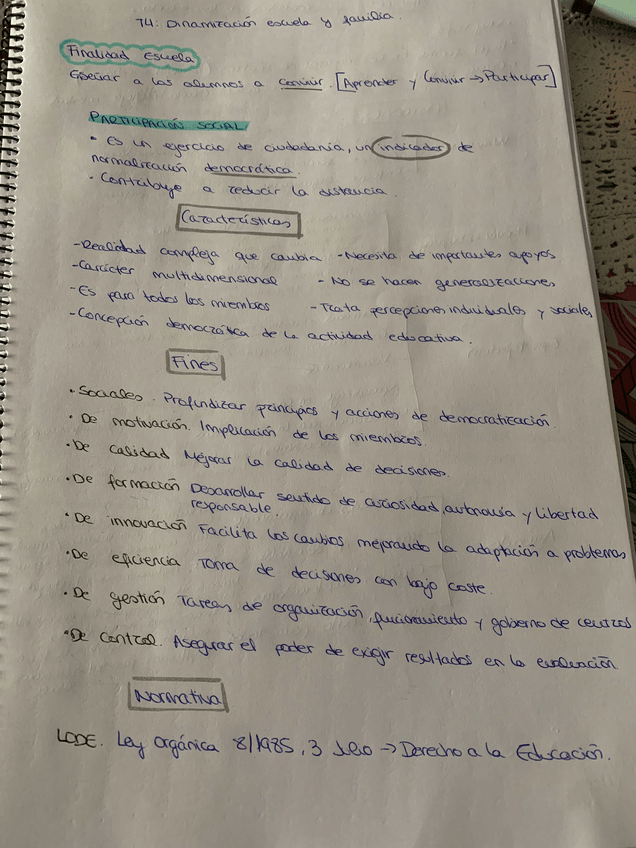 T4: Dinamización escuela y familia.
Finalidad escuela
Enseñar a los alumnos a convivir. [Aprender y Convivir → Participar]
PARTICIPACIÓN SOCIAL
• Es un ejercicio de ciudadanía, un indicador de
normalización democrática.
• Contribuye a reducir la distancia.
Características
-Realidad compleja que cambia -Necesita de importantes apoyos
-Carácter multidimensional - No se hacen generalizaciones
-Es para todos los miembros -Trata percepciones individuales y sociales
-Concepción democrática de la actividad educativa.
Fines
• Sociales. Profundizar principios y acciones de democratización
• De motivación. Implicación de los miembros.
• De calidad Mejorar la calidad de decisiones.
• De formación Desarrollar sentido de autonomía y libertad
responsable.
• De innovación Facilita los cambios mejorando la adaptación a problemas
• De eficiencia Toma de decisiones con bajo coste.
• De gestión Tareas de organización, funcionamiento y gobierno de centros
• De control. Asegurar el poder de exigir resultados en la evaluación
Normativa
LODE. Ley Orgánica 8/1985, 3 Julio → Derecho a la Educación.